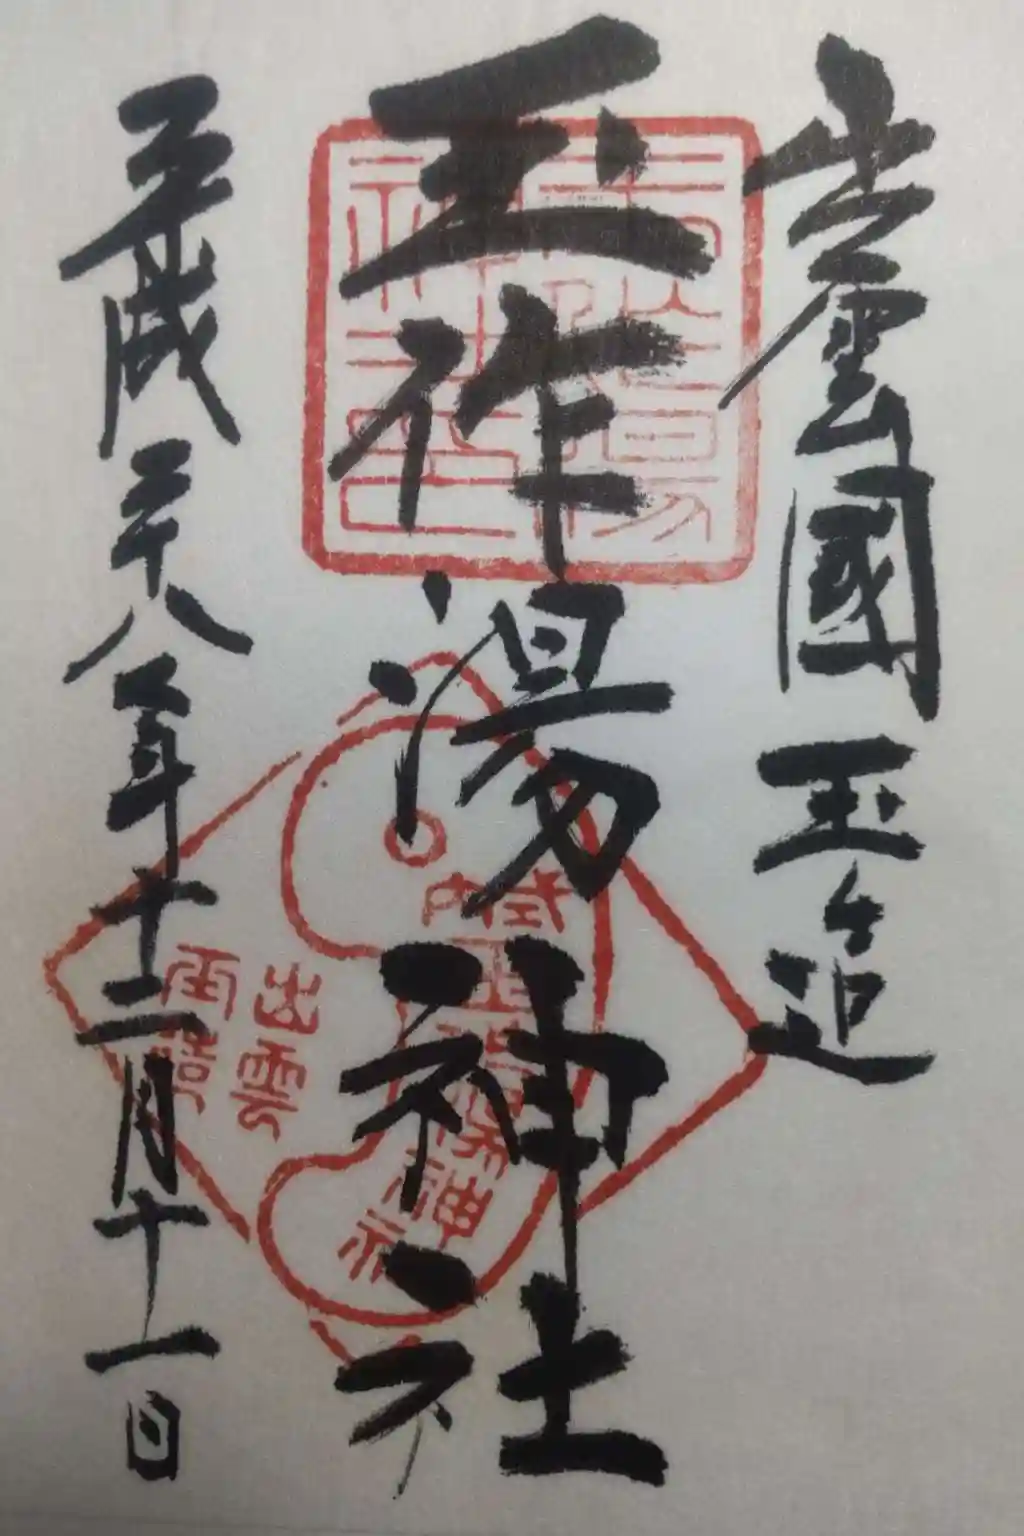 出雲國玉造
玉作湯神社
平成二十八年十二月十一日
玉作湯
神社之印
出雲
玉作湯神社